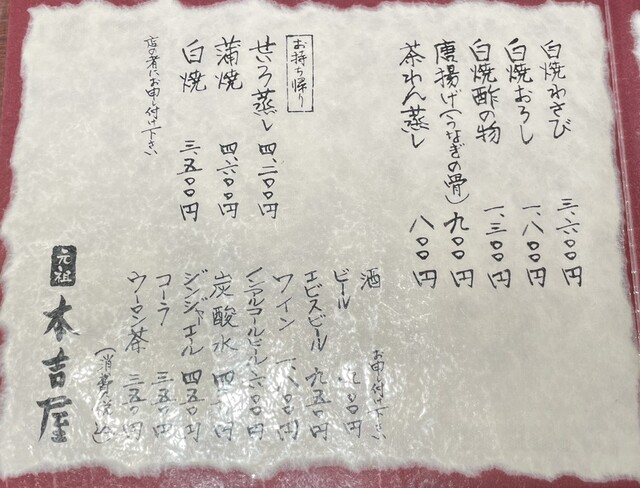 白焼わさび 三、六〇〇円
白焼おろし 一、八〇〇円
白焼酢の物 一、三〇〇円
唐揚げ(うなぎの骨) 九〇〇円
茶わん蒸し 八〇〇円
お持ち帰り
せいろ蒸し 四、二〇〇円
蒲焼 四、六〇〇円
白焼 三、五〇〇円
店の者にお申し付け下さい
酒 お申付け下さい
ビール 〇〇円
エビスビール 九五〇円
ワイン 一、八〇〇円
ノンアルコールビール 六〇〇円
炭酸水 四〇〇円
ジンジャエール 四五〇円
コーラ 三五〇円
ウーロン茶 三五〇円
(消費税込)
元祖
本吉屋